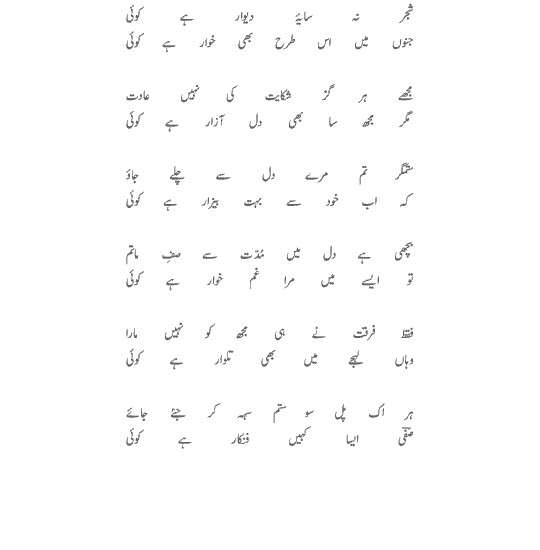 شجر نہ سایۂ دیوار ہے کوئی
جنوں میں اس طرح بھی خوار ہے کوئی
مجھے ہر گز شکایت کی نہیں عادت
مگر مجھ سا بھی دل آزار ہے کوئی
ستمگر تم مرے دل سے چلے جاؤ
کہ اب خود سے بہت بیزار ہے کوئی
بچھی ہے دل میں مُدّت سے صفِ ماتم
تو ایسے میں مرا غم خوار ہے کوئی
فقط فرقت نے ہی مجھ کو نہیں مارا
وہاں لہجے میں بھی تلوار ہے کوئی
ہر اک پل سو ستم سہہ کر جئے جائے
صفؔی ایسا کہیں فنکار ہے کوئی